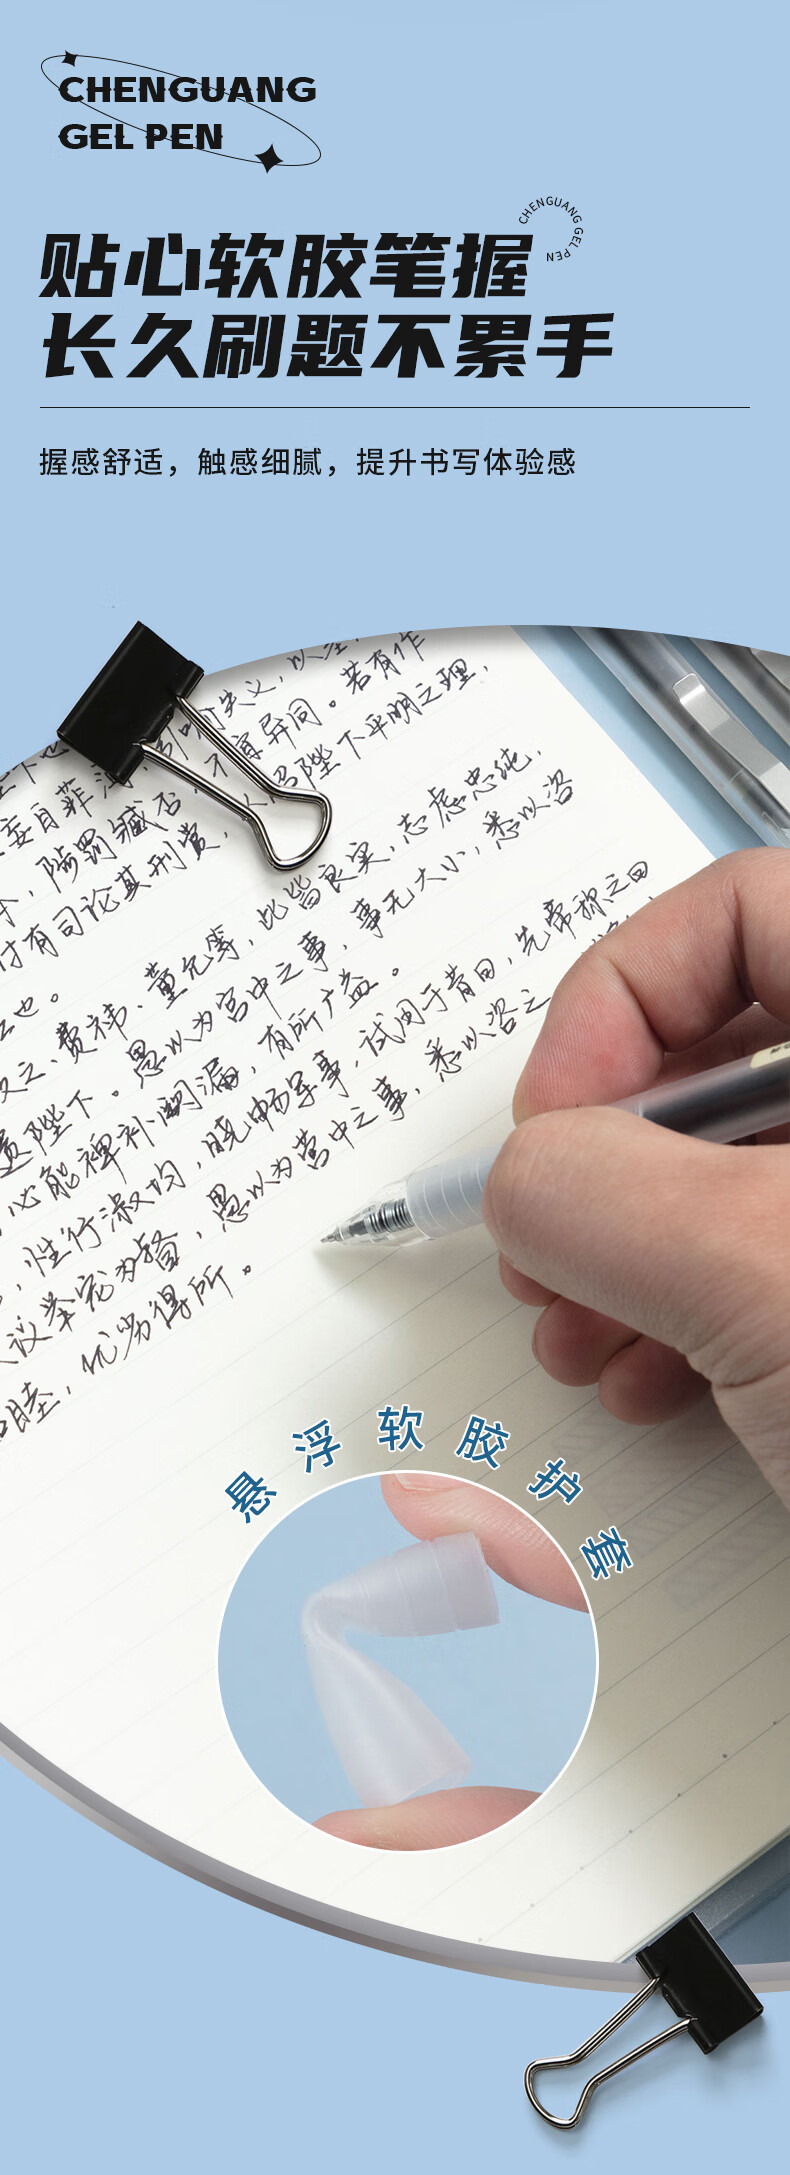 CHENGUANG
GEL PEN
贴心软胶笔握
CHENGUANG GEL PEN
长久刷题不累手
握感舒适，触感细腻，提升书写体验感
妄自菲薄，引喻失义，以塞
，陟罚臧否，不宜异同。若有作
付有司论其刑赏，以昭陛下平明之理，
也。
之、费祎、董允等，此皆良实，志虑忠纯，
遗陛下。愚以为宫中之事，事无大小，悉以咨
必能裨补阙漏，有所广益。
，性行淑均，晓畅军事，试用于昔日，先帝称之曰
议举宠为督，愚以为营中之事，悉以咨之
睦，优劣得所。
悬浮软胶护套